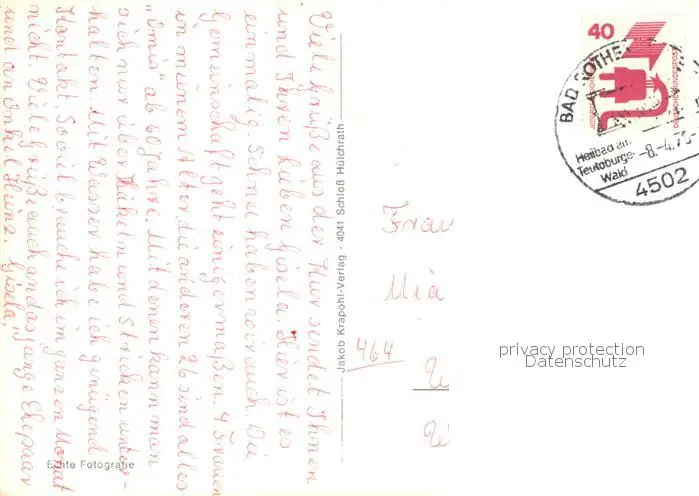 Viele Grüße aus der Kur sendet Ihnen
und Ihren Lieben Gisela. Hier ist es
einmalig. Schnee haben wir auch. Die
Gemeinschaft geht einigermaßen. 4 Frauen
in meinem Alter die anderen 26 sind alles
"Omis" ab 60 Jahre. Mit denen kann man
sich nur über Häkeln und Stricken unter-
halten. Mit Wasser habe ich genügend
Kontakt. Soviel brauche ich im ganzen Monat
nicht. Viele Grüße auch an das junge Ehepaar
und an Onkel Heinz. Gisela
Echte Fotografie
Jakob Krapohl-Verlag · 4041 Schloß Hülchrath
40
DEUTSCHE BUNDESPOST
BAD ROTHE
Heilbad am
Teutoburger
Wald
-8.-4.75-
4502
Frau
Mia
464
privacy protection
Datenschutz